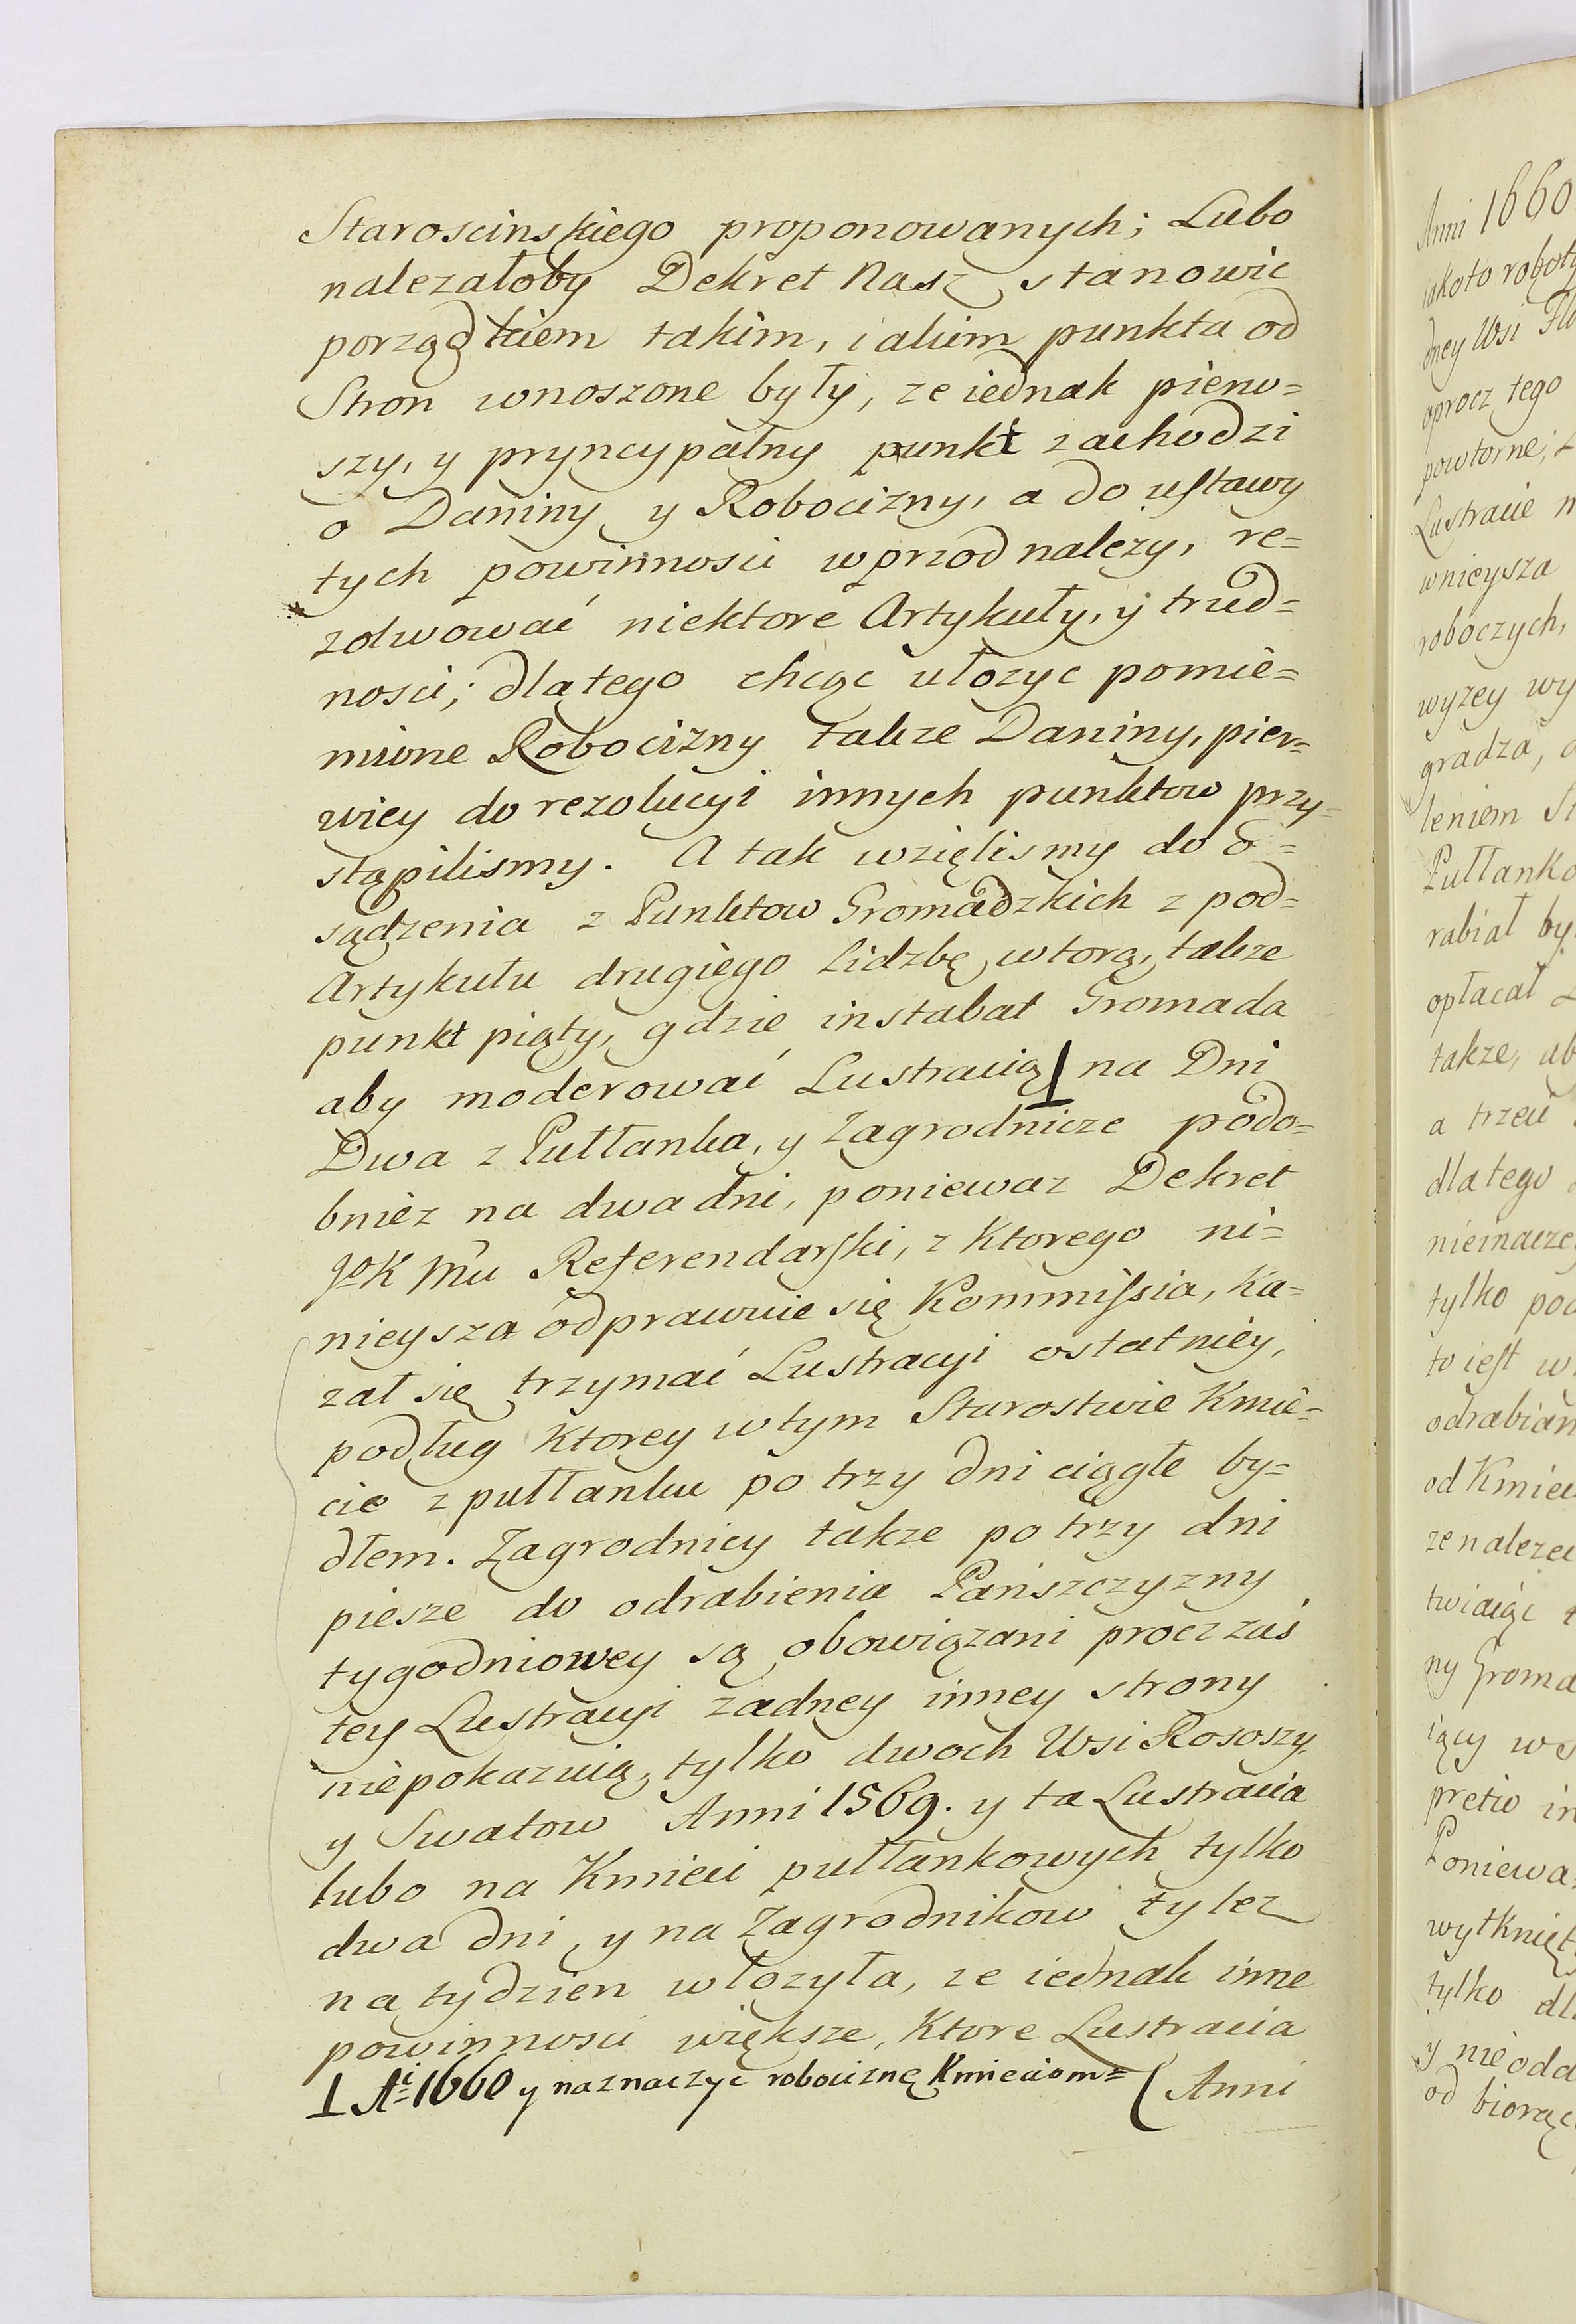 Staroscinskiego proponowanych; Lubo
nalezałoby Dekret Nasz stanowic
porządkiem takim, iakim punkta od
Stron wnoszone były, ze iednak pierw=
szy, y pryncypalny punkt zachodzi
o Daniny y Robocizny, a do ustawy
tych powinnosci wprzod nalezy, re=
zolwować niektore Artykuły, y trud=
nosci; dlatego chcąc ułozyc pomie=
nione Robocizny takze Daniny, pier=
wiey do rezolucyi innych punktow przy=
stąpilismy. A tak wzięlismy do o=
sądzenia z Punktow Gromadzkich z pod=
Artykułu drugiego Lidzbę wtorą, takze
punkt piąty, gdzie instabat Gromada
aby moderować Lustracią ⊥ na Dni
Dwa z Pułłanka, y Zagrodnicze podo=
bniez na dwa dni, poniewaz Dekret
JoK Mu Referendarski, z Ktorego ni=
nieysza odprawuie się Kommissia, Ka=
zał się trzymać Lustracyi ostatniey,
podług Ktorey w tym Starostwie Kmie=
cie z pułłanku po trzy dni ciągłe by=
dłem. Zagrodnicy takze po trzy dni
piesze do odrabienia Panszczyzny
tygodniowey są obowiązani procz zaś
tey Lustracyi zadney inney strony
niepokazuią, tylko dwoch Wsi Rososzy,
y Swatow Anni 1569. y ta Lustracia
lubo na Kmieci pułłankowych tylko
dwa dni, y na Zagrodnikow tylez
na tydzien włozyła, ze iednak inne
powinnosci większe, Ktore Lustracia
⊥ Ai 1660 y naznaczyc robociznę Kmieciom= ( Anni
Anni 1660
iakoto roboty
dney Wsi
oprocz tego
powtorne;
Lustracie
wnieysza
roboczych,
wyzey wy
gradza,
leniem
Pułłanko
rabiał by
opłacał
takze, ab
a trzeci
dlatego
nieinacze
tylko pod
to iest w
odrabian
od Kmiec
ze nalezec
twiaiąc
ny Groma
iący
pretio in
Poniewa
wytknięt
tylko dl
y nie oda
od biorąc